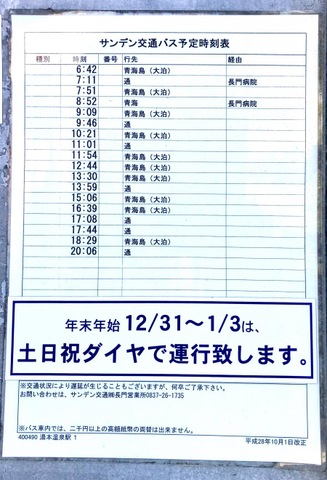 サンデン交通バス予定時刻表
種別 時刻 番号 行先 経由
6:42 青海島（大泊）
7:11 通 長門病院
7:51 青海島（大泊）
8:52 青海 長門病院
9:09 青海島（大泊）
9:46 通
10:21 青海島（大泊）
11:01 通
11:54 青海島（大泊）
12:44 青海島（大泊）
13:30 青海島（大泊）
13:59 通
15:06 青海島（大泊）
16:39 青海島（大泊）
17:08 通
17:44 通
18:29 青海島（大泊）
20:06 通
年末年始 12/31～1/3は、
土日祝ダイヤで運行致します。
※交通状況により遅延が生じることもございますが、何卒ご了承下さい。
お問い合わせは、サンデン交通㈱長門営業所0837-26-1735
※バス車内では、二千円以上の高額紙幣の両替は出来ません。
400490 湯本温泉駅 1 平成28年10月1日改正